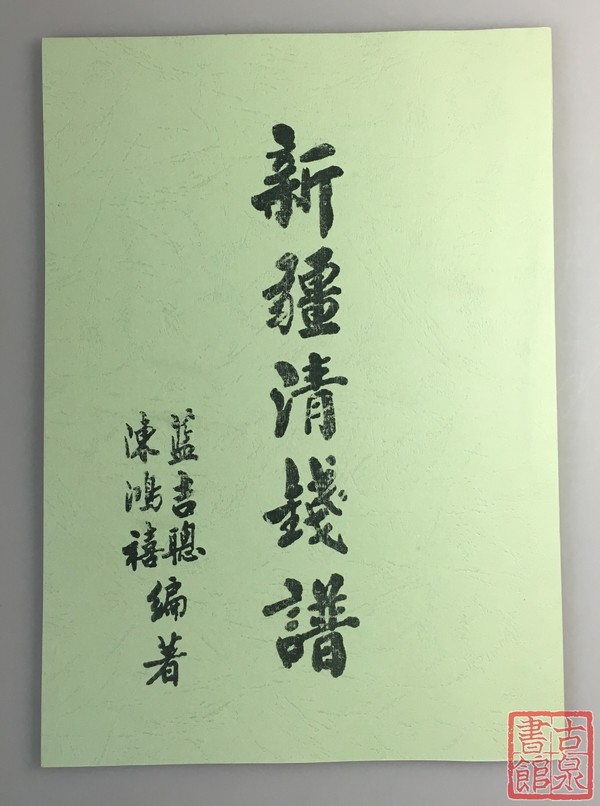 新疆清錢譜
藍吉聰
陳鴻禧
編著
古泉書館